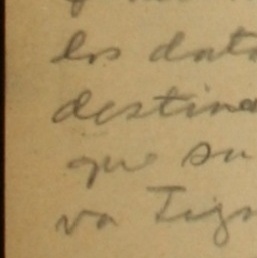 los dat
destina
que su
va Tign